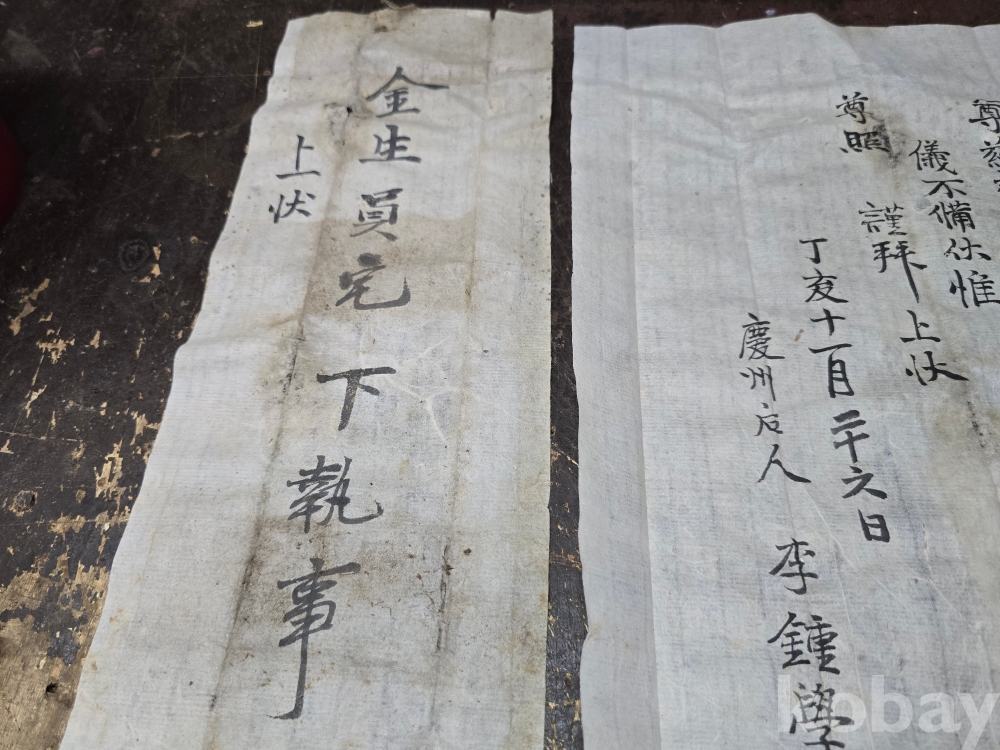 金生員宅 下執事
上狀
尊慈
儀不備伏惟
尊照 謹拜 上狀
丁亥十一月二十六日
慶州后人 李鍾學
kobay